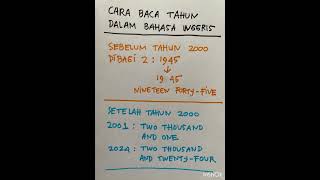 CARA BACA TAHUN
DALAM BAHASA INGGRIS
SEBELUM TAHUN 2000
DIBAGI 2 : 1945
↓
19 45
NINETEEN FORTY-FIVE
SETELAH TAHUN 2000
2001 : TWO THOUSAND
AND ONE
2024 : TWO THOUSAND
AND TWENTY-FOUR